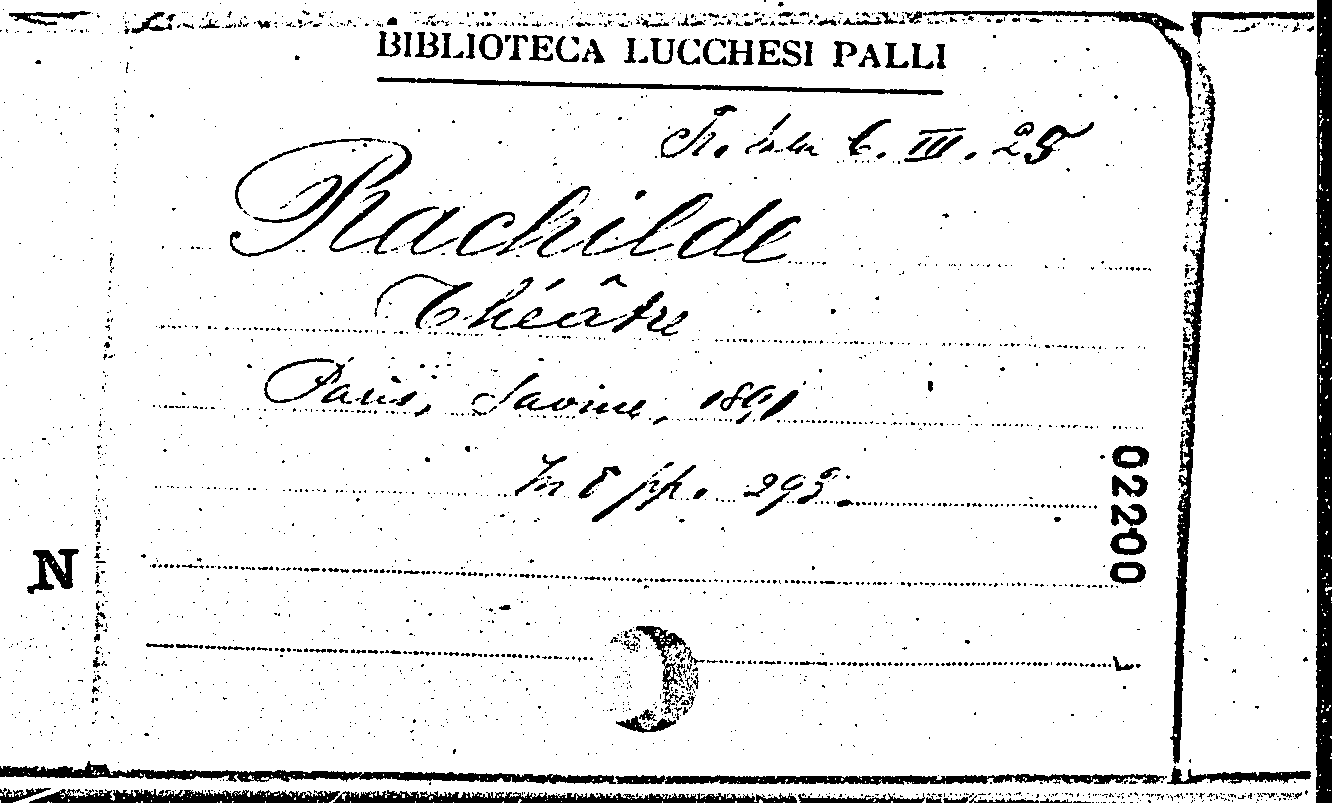 BIBLIOTECA LUCCHESI PALLI
6. III. 25
Rachilde
Théâtre
Paris, Savine, 1891
In 8 pp. 293.
02200
N